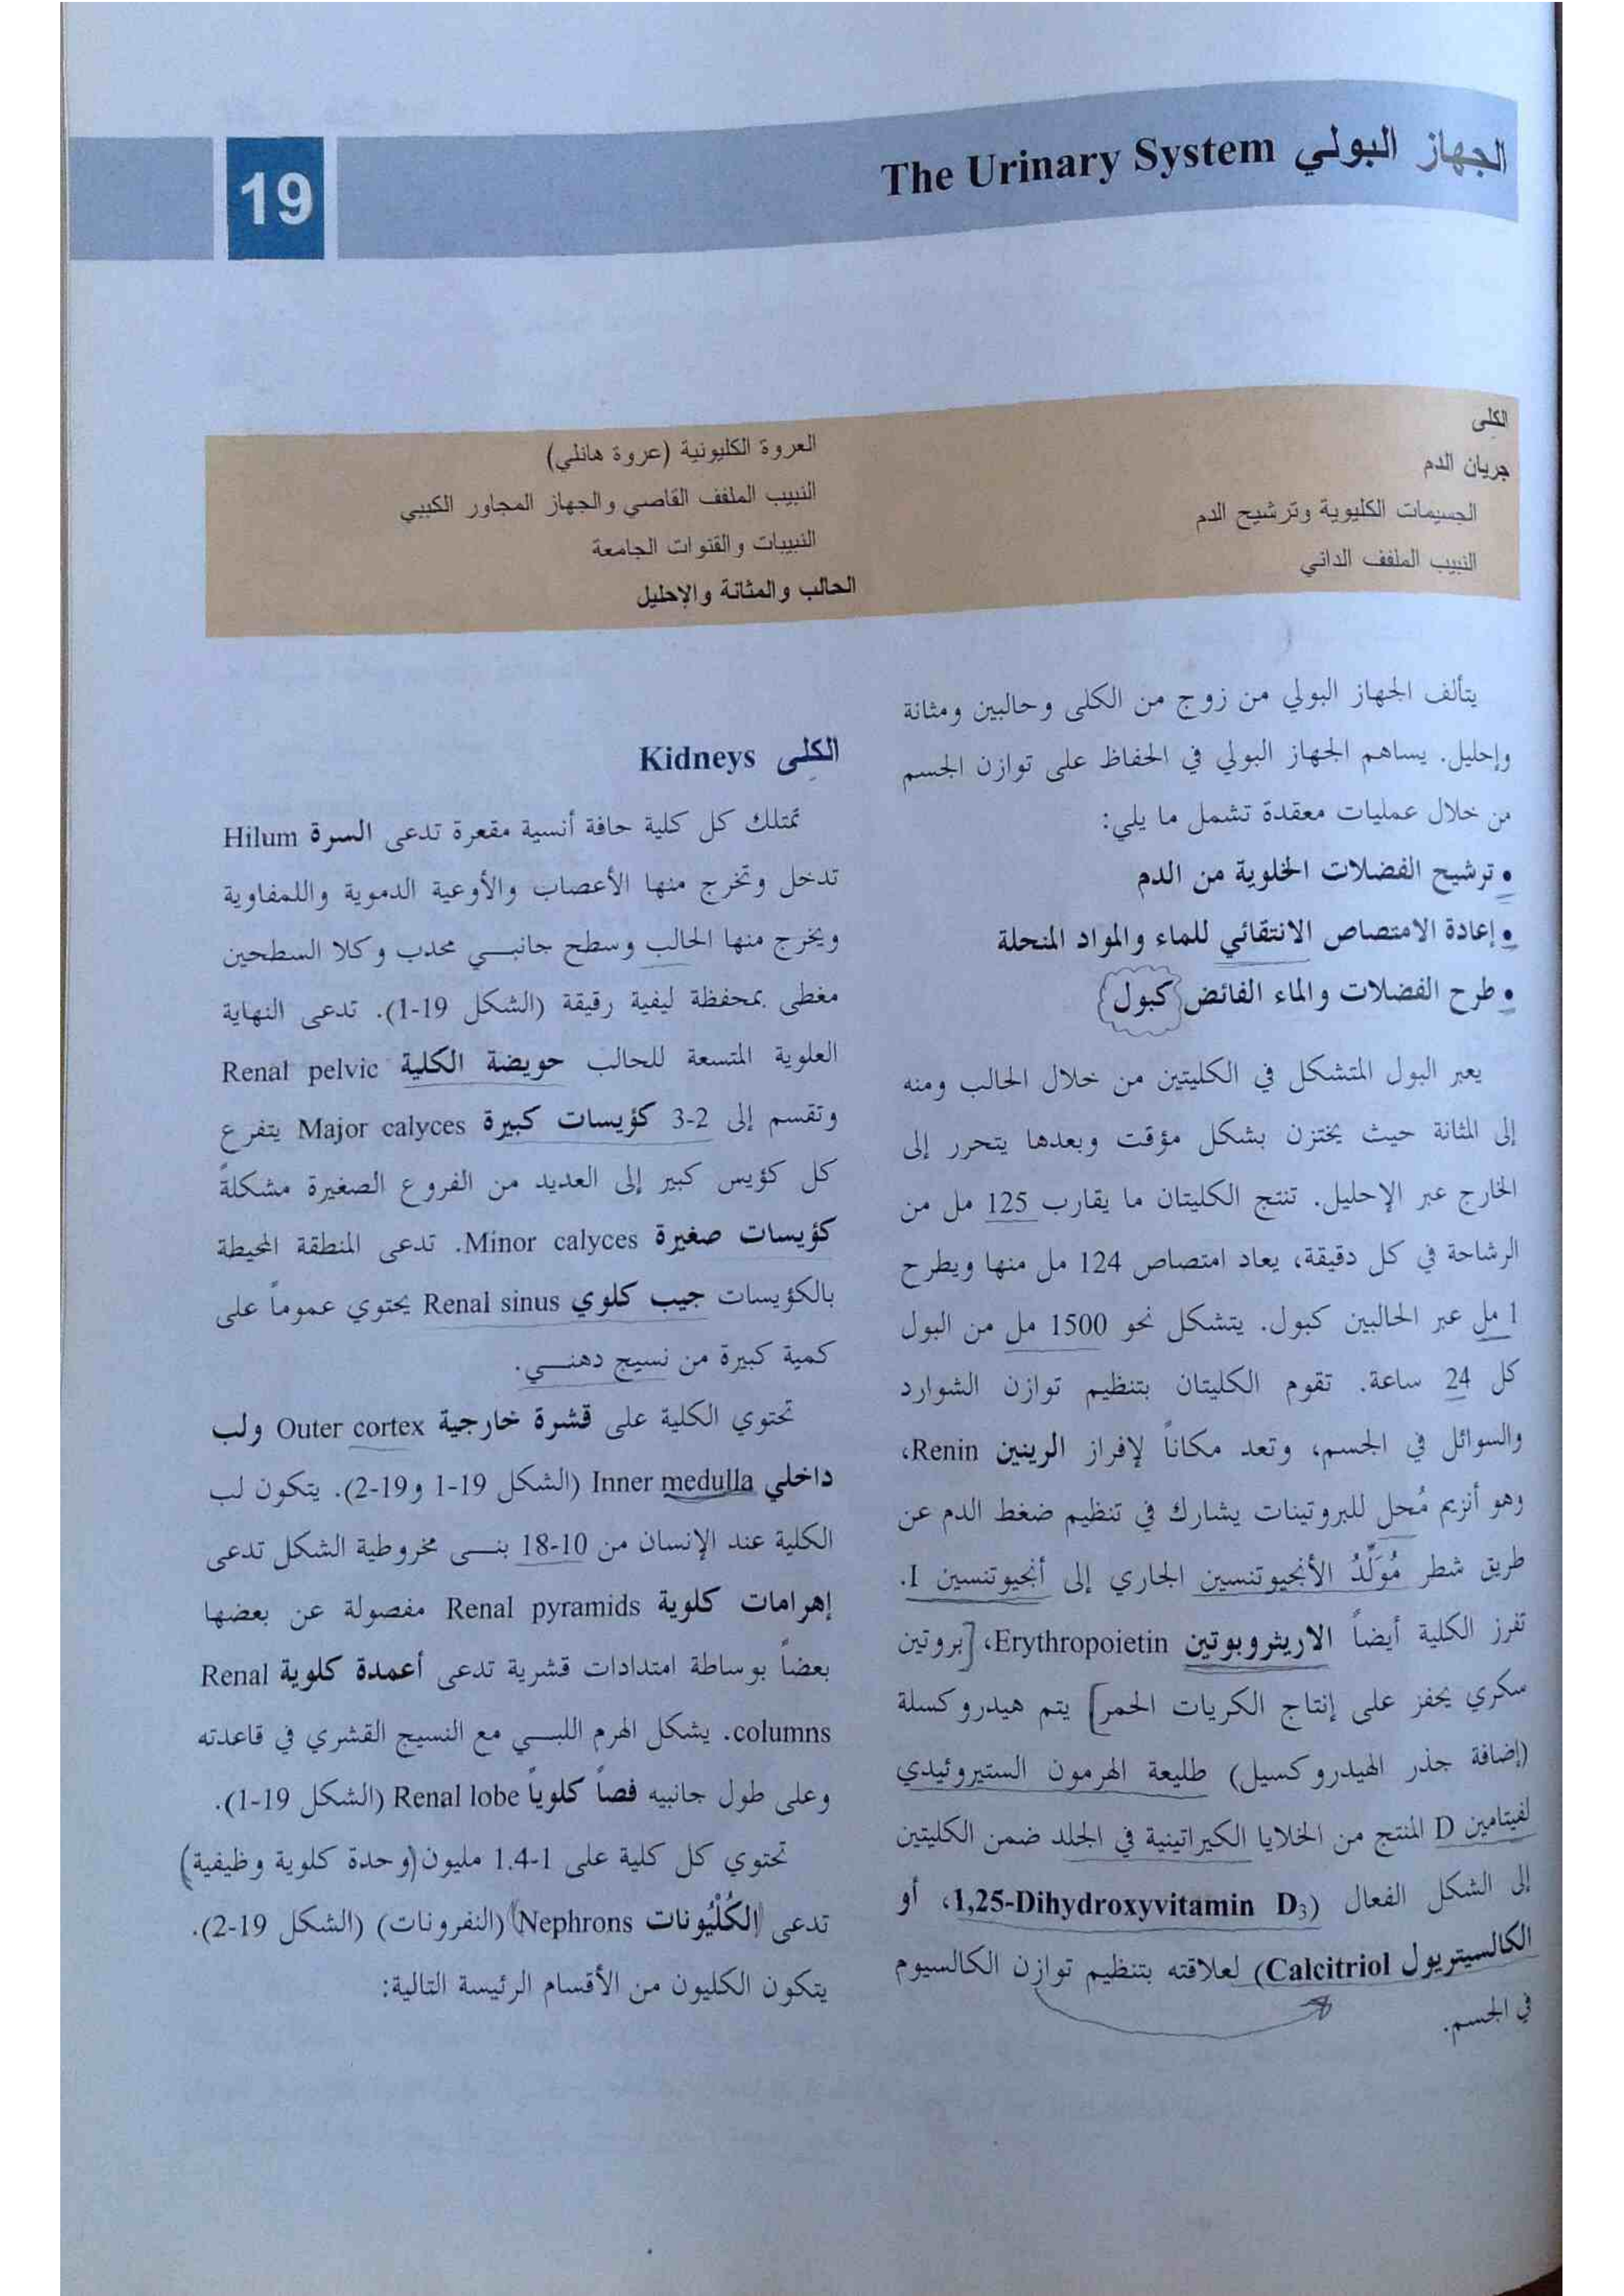 الجهاز البولي The Urinary System
19
الكلى
جريان الدم
الجسيمات الكليوية وترشيح الدم
النبيب الملفف الداني
العروة الكليونية (عروة هانلي)
النبيب الملفف القاصي والجهاز المجاور الكبيبي
النبيبات والقنوات الجامعة
الحالب والمثانة والإحليل
يتألف الجهاز البولي من زوج من الكلى وحالبين ومثانة
وإحليل. يساهم الجهاز البولي في الحفاظ على توازن الجسم
من خلال عمليات معقدة تشمل ما يلي:
• ترشيح الفضلات الخلوية من الدم
• إعادة الامتصاص الانتقائي للماء والمواد المنحلة
• طرح الفضلات والماء الفائض كبول
يعبر البول المتشكل في الكليتين من خلال الحالب ومنه
إلى المثانة حيث يختزن بشكل مؤقت وبعدها يتحرر إلى
الخارج عبر الإحليل. تنتج الكليتان ما يقارب 125 مل من
الرشاحة في كل دقيقة، يعاد امتصاص 124 مل منها ويطرح
1 مل عبر الحالبين كبول. يتشكل نحو 1500 مل من البول
كل 24 ساعة. تقوم الكليتان بتنظيم توازن الشوارد
والسوائل في الجسم، وتعد مكاناً لإفراز الرينين Renin،
وهو أنزيم مُحل للبروتينات يشارك في تنظيم ضغط الدم عن
طريق شطر مُوَلِّدُ الأنجيوتنسين الجاري إلى أنجيوتنسين I.
تفرز الكلية أيضاً الاريثروبوتين Erythropoietin، [بروتين
سكري يحفز على إنتاج الكريات الحمر] يتم هيدروكسلة
(إضافة جذر الهيدروكسيل) طليعة الهرمون الستيروئيدي
لفيتامين D المنتج من الخلايا الكيراتينية في الجلد ضمن الكليتين
إلى الشكل الفعال (1,25-Dihydroxyvitamin D₃، أو
الكالسيتريول Calcitriol) لعلاقته بتنظيم توازن الكالسيوم
في الجسم.
الكِلى Kidneys
تمتلك كل كلية حافة أنسية مقعرة تدعى السرة Hilum
تدخل وتخرج منها الأعصاب والأوعية الدموية واللمفاوية
ويخرج منها الحالب وسطح جانبي محدب وكلا السطحين
مغطى بمحفظة ليفية رقيقة (الشكل 19-1). تدعى النهاية
العلوية المتسعة للحالب حويضة الكلية Renal pelvic
وتقسم إلى 2-3 كؤيسات كبيرة Major calyces يتفرع
كل كؤيس كبير إلى العديد من الفروع الصغيرة مشكلةً
كؤيسات صغيرة Minor calyces. تدعى المنطقة المحيطة
بالكؤيسات جيب كلوي Renal sinus يحتوي عموماً على
كمية كبيرة من نسيج دهني.
تحتوي الكلية على قشرة خارجية Outer cortex ولب
داخلي Inner medulla (الشكل 19-1 و19-2). يتكون لب
الكلية عند الإنسان من 10-18 بنى مخروطية الشكل تدعى
إهرامات كلوية Renal pyramids مفصولة عن بعضها
بعضاً بوساطة امتدادات قشرية تدعى أعمدة كلوية Renal
columns. يشكل الهرم اللبي مع النسيج القشري في قاعدته
وعلى طول جانبيه فصاً كلوياً Renal lobe (الشكل 19-1).
تحتوي كل كلية على 1-1.4 مليون (وحدة كلوية وظيفية)
تدعى (الكُلْيُونات Nephrons) (النفرونات) (الشكل 19-2).
يتكون الكليون من الأقسام الرئيسة التالية: